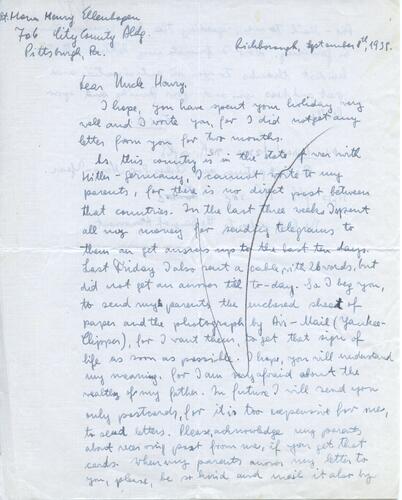 Hon. Henry Ellenbogen
706 City County Bldg.
Pittsburgh, Pa.
Richborough, September 8th, 1939.
Dear Uncle Henry.
I hope, you have spent your holiday very
well and I write you, for I did not get any
letter from you for two months.
As this country is in the state of war with
Hitler-Germany, I cannot write to my
parents, for there is no direct post between
that countries. In the last three weeks I spent
all my money for sending telegrams to
them an get answers up to the last ten days.
Last Friday I also sent a cable, with 26 words, but
did not get an answer till to-day. So I beg you,
to send my parents the enclosed sheet of
paper and the photograph by Air-Mail (Yankee-
Clipper), for I want them, to get that sign of
life as soon as possible. I hope, you will understand
my meaning, for I am very afraid about the
health of my father. In future I will send you
only postcards, for it is too expensive for me,
to send letters. Please, acknowledge my parents
about receiving post from me, if you get that
cards. When my parents answer my letter to
you, please, be so kind and mail it also by